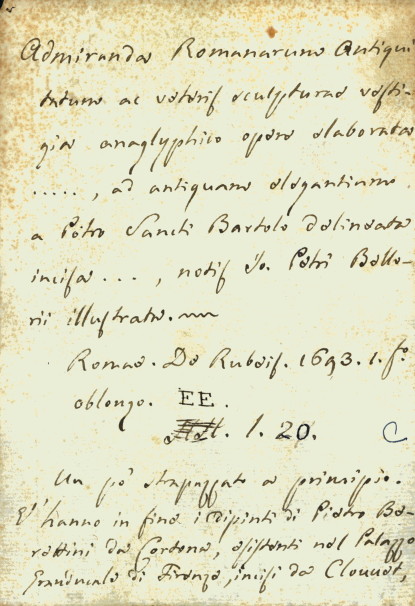 Admiranda Romanarum Antiqui
tatum ac veteris sculpturae vesti-
gia anaglyphico opere elaborata
....., ad antiquam elegantiam
a Petro Sancti Bartolo delineata
incisa ..., notis Jo. Petri Bello-
rii illustrata.
Romae. De Rubeis. 1693. 1. fo
oblongo. EE.
1. 20. C
Un po' strapazzato a principio.
Vi hanno in fine i dipinti di Pietro Be-
rettini da Cortona, esistenti nel Palazzo
Granducale di Firenze, incisi da Clouwet,